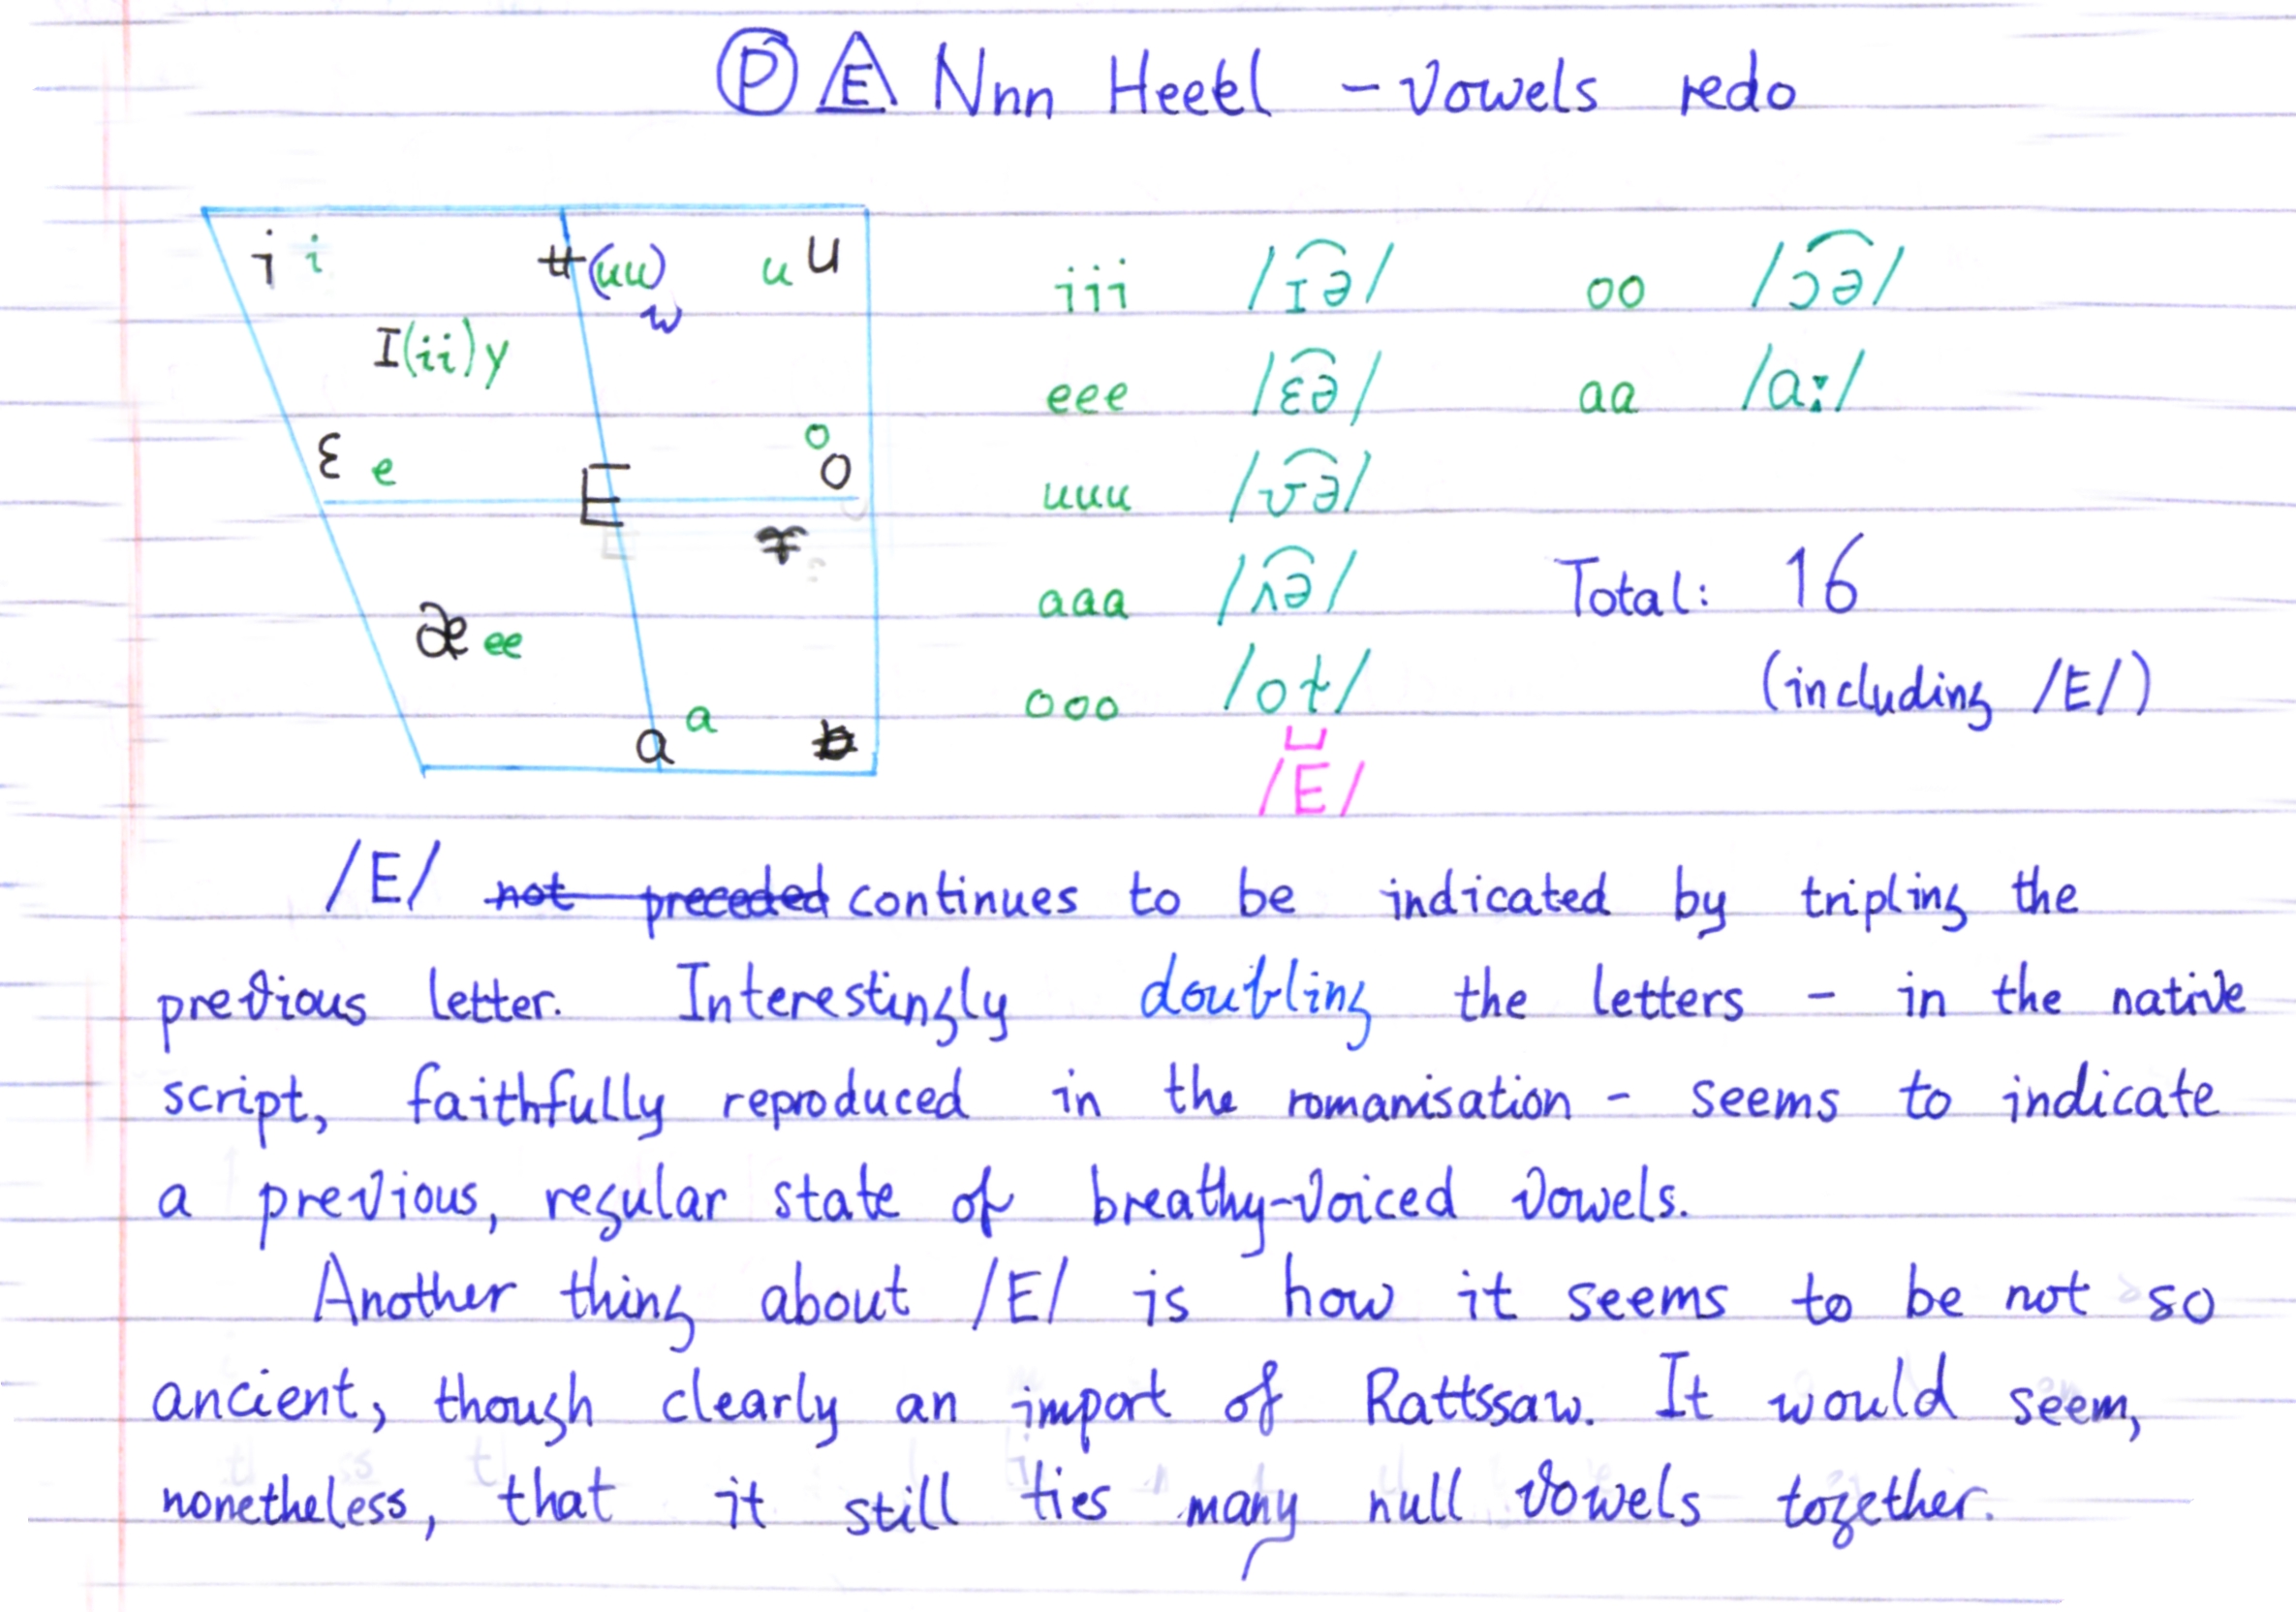 Ⓟ E Nnn Heetl - Vowels redo
i i ʉ (uu) w u u
I (ii) y
ɛ e E o o
æ ee
a a
iii /ɪ͡ə/ oo /ɔ͡ə/
eee /ɛ͡ə/ aa /aː/
uuu /ʊ͡ə/
aaa /ʌ͡ə/ Total: 16
ooo /ot/ (including /E/)
/E/
/E/ not preceded continues to be indicated by tripling the
previous letter. Interestingly doubling the letters - in the native
script, faithfully reproduced in the romanisation - seems to indicate
a previous, regular state of breathy-voiced vowels.
Another thing about /E/ is how it seems to be not so
ancient, though clearly an import of Rattssaw. It would seem,
nonetheless, that it still ties many null vowels together.